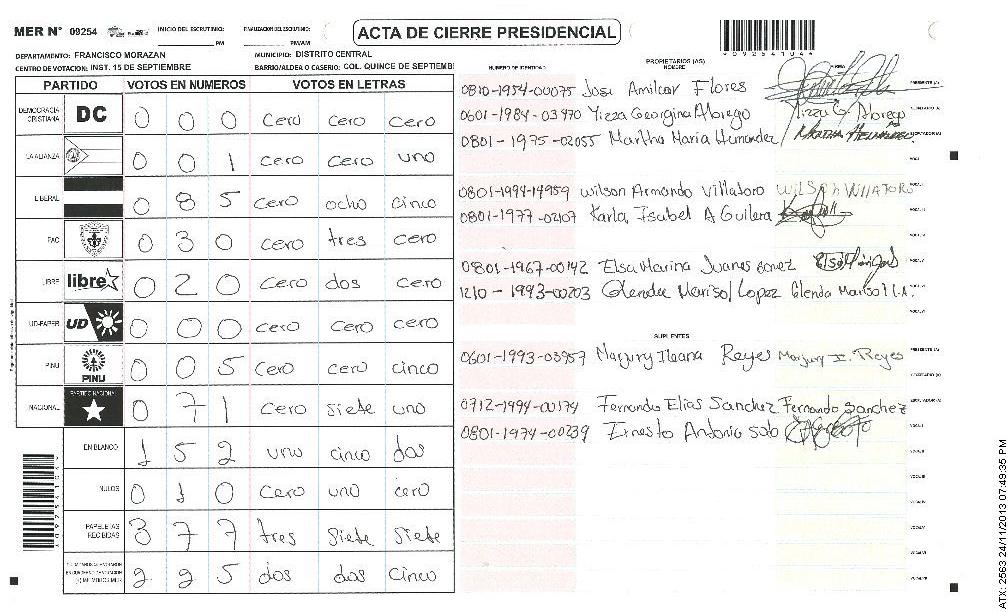 MER N° 09254 INICIO DEL ESCRUTINIO: PM FINALIZACION DEL ESCRUTINIO: PM/AM
ACTA DE CIERRE PRESIDENCIAL
DEPARTAMENTO: FRANCISCO MORAZAN MUNICIPIO: DISTRITO CENTRAL
CENTRO DE VOTACION: INST. 15 DE SEPTIEMBRE BARRIO/ALDEA O CASERIO: COL. QUINCE DE SEPTIEMB
PARTIDO VOTOS EN NUMEROS VOTOS EN LETRAS
DEMOCRACIA CRISTIANA DC 0 0 0 cero cero cero
LA ALIANZA 0 0 1 cero cero uno
LIBERAL 0 8 5 cero ocho cinco
PAC 0 3 0 cero tres cero
LIBRE libre 0 2 0 cero dos cero
UD-FAPER UD 0 0 0 cero cero cero
PINU PINU 0 0 5 cero cero cinco
NACIONAL PARTIDO NACIONAL 0 7 1 cero siete uno
EN BLANCO 1 5 2 uno cinco dos
NULOS 0 1 0 cero uno cero
PAPELETAS RECIBIDAS 3 7 7 tres siete siete
2 2 5 dos dos cinco
NUMERO DE IDENTIDAD PROPIETARIOS (AS) NOMBRE FIRMA
0810-1954-00075 Jose Amilcar Flores PRESIDENTE (A)
0601-1984-03470 Yizza Georgina Abrego Yizza G. Abrego
0801-1975-02055 Martha Maria Hernandez Martha Hernandez
0801-1994-14959 Wilson Armando Villatoro Wilson Villatoro
0801-1977-02107 Karla Isabel Aguilera
0801-1967-00142 Elsa Marina Juanes
1210-1993-00203 Glenda Marisol Lopez Glenda Marisol L.
SUPLENTES
0601-1993-03957 Marjury Ileana Reyes Marjury I. Reyes PRESIDENTE (A)
0712-1994-00174 Fernando Elias Sanchez Fernando Sanchez
0801-1974-00239 Ernesto Antonio Soto
ATX: 2563 24/11/2013 07:49:35 PM